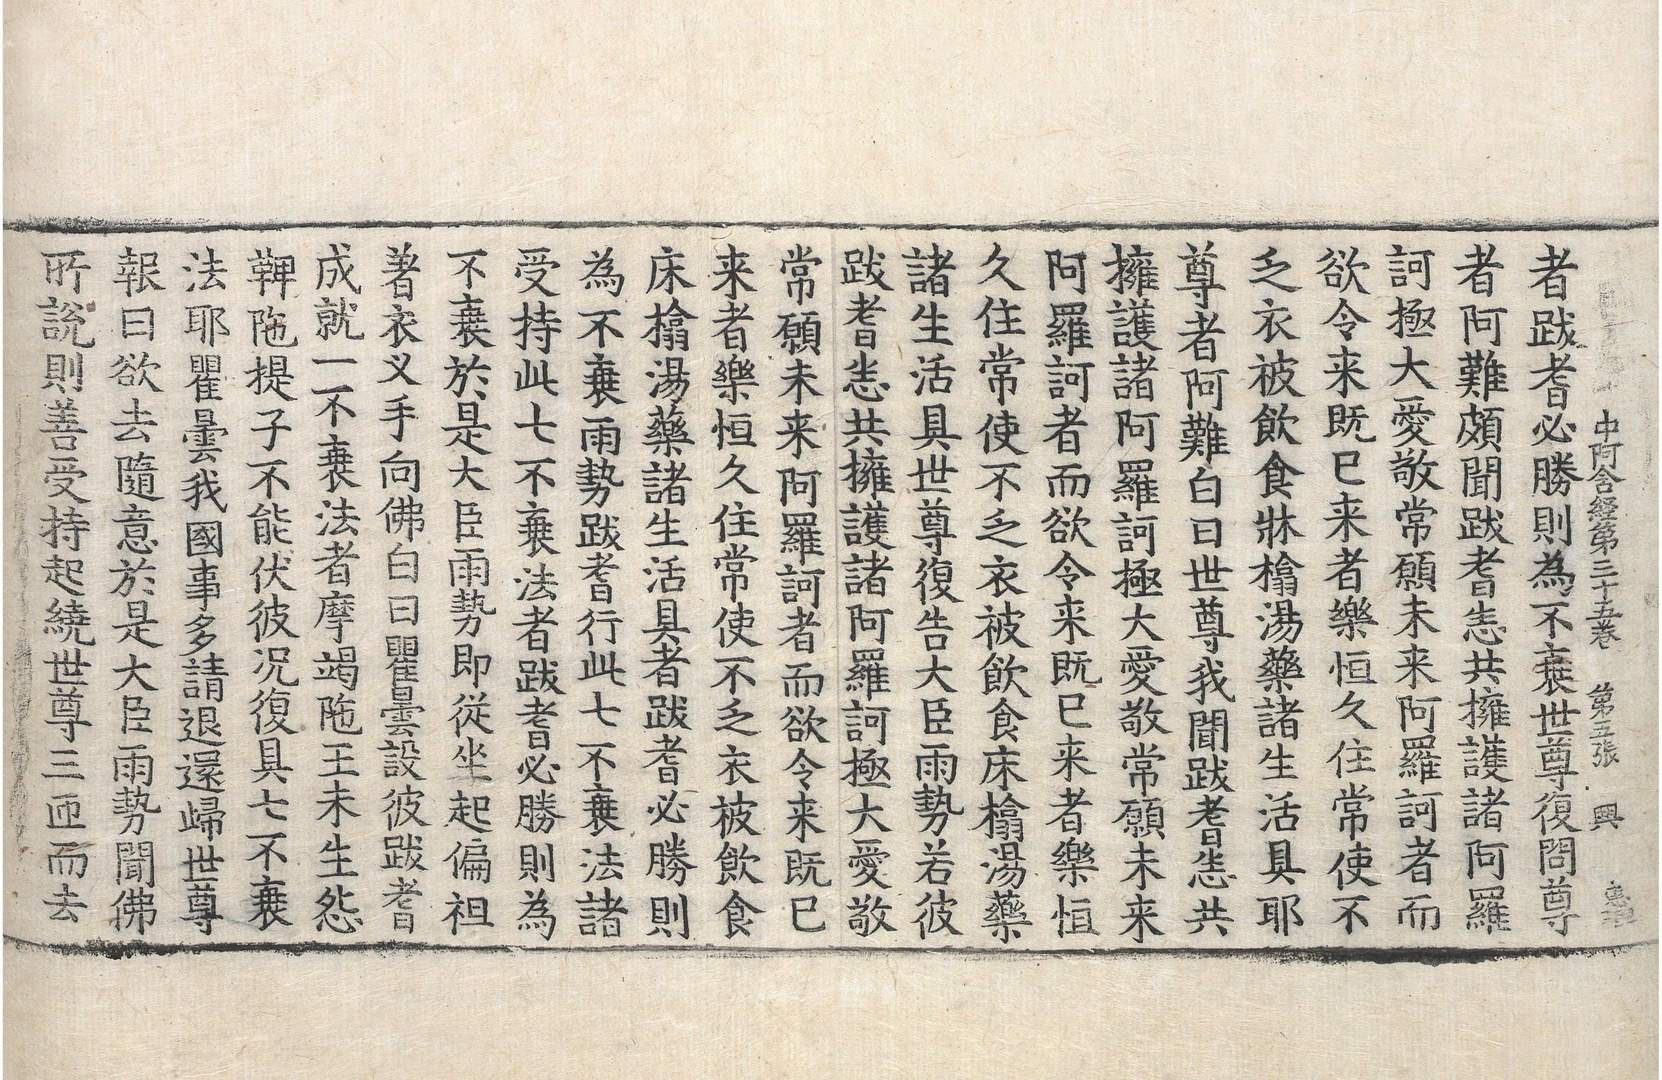 中阿含経第三十五巻　第五張　興
者跋耆必勝則為不衰世尊復問尊
者阿難頗聞跋耆悉共擁護諸阿羅
訶極大愛敬常願未来阿羅訶者而
欲令来既已来者樂恒久住常使不
乏衣被飲食牀榻湯藥諸生活具耶
尊者阿難白曰世尊我聞跋耆悉共
擁護諸阿羅訶極大愛敬常願未来
阿羅訶者而欲令来既已来者樂恒
久住常使不乏衣被飲食床榻湯藥
諸生活具世尊復告大臣雨勢若彼
跋耆悉共擁護諸阿羅訶極大愛敬
常願未来阿羅訶者而欲令来既已
来者樂恒久住常使不乏衣被飲食
床榻湯藥諸生活具者跋耆必勝則
為不衰雨勢跋耆行此七不衰法諸
受持此七不衰法者跋耆必勝則為
不衰於是大臣雨勢即從坐起偏袒
著衣叉手向佛白曰瞿曇設彼跋耆
成就一不衰法者摩竭陁王未生怨
鞞陁提子不能伏彼况復具七不衰
法耶瞿曇我國事多請退還歸世尊
報曰欲去隨意於是大臣雨勢聞佛
所說則善受持起繞世尊三匝而去